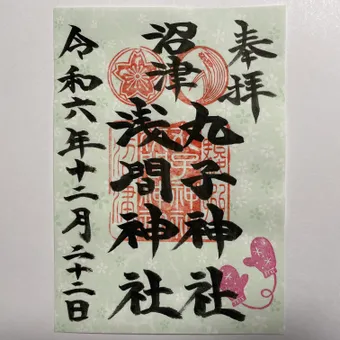 奉拝
沼津
丸子神社
浅間神社
令和六年十二月二十二日